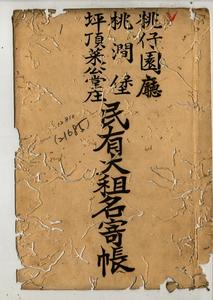 桃仔園廳
桃澗堡
坪頂菜公堂庄
民有大租名寄帳